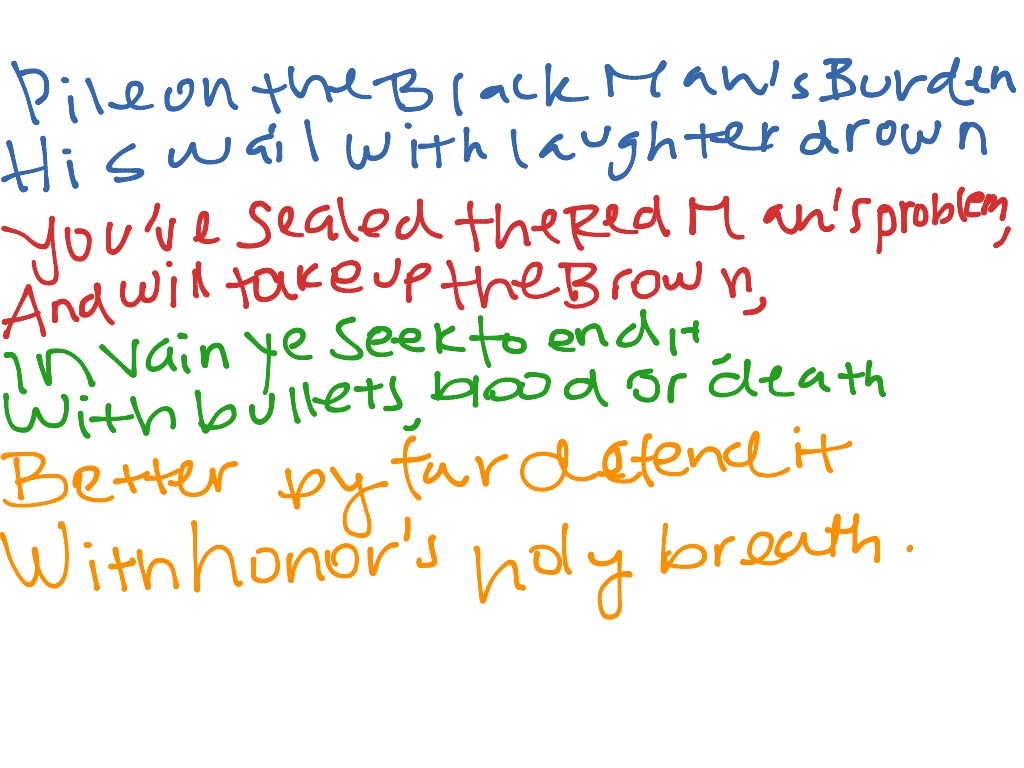 Pile on the Black Man's Burden
His wail with laughter drown
You've sealed the Red Man's problem,
And will take up the Brown,
In vain ye seek to end it
With bullets, blood or death
Better by far defend it
With honor's holy breath.